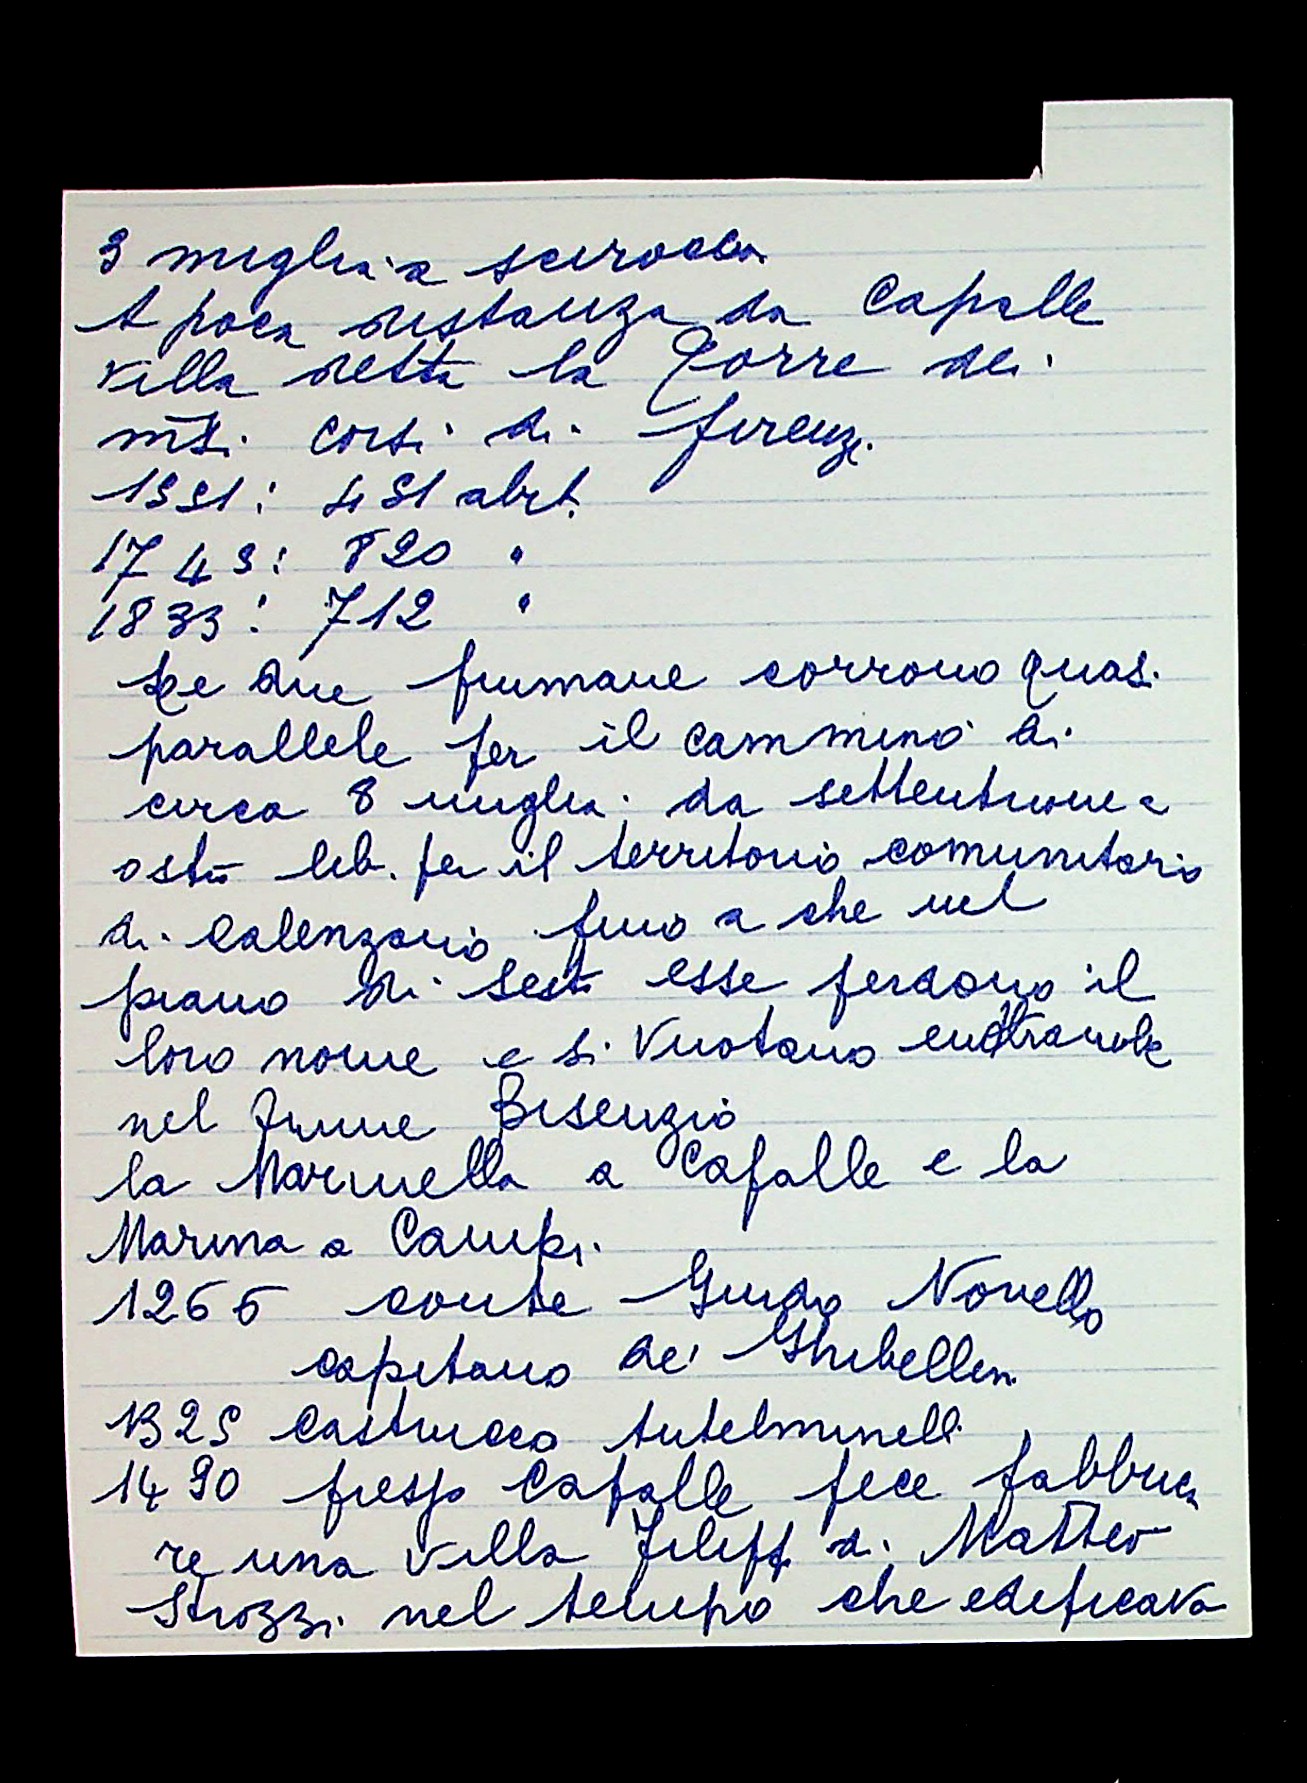 3 miglia a scirocco
A poca distanza da Capalle
villa detta la Torre dei
m̅s̅. Corsi di Firenz.
1551: 451 abit.
1745: 820 "
1833: 712 "
Le due fiumane corrono quasi
parallele per il cammino di
circa 8 miglia da settentrione a
ostro lib. per il territorio comunitario
di Calenzano fino a che nel
piano di Sesto esse perdono il
loro nome e si vuotano entrambe
nel fiume Bisenzio
la Marinella a Capalle e la
Marina a Campi.
1266 conte Guido Novello
capitano de' Ghibellin.
1325 Castruccio Antelminelli
1490 presso Capalle fece fabbrica
re una villa Filipp. di Matteo
Strozzi nel tempo che edificava